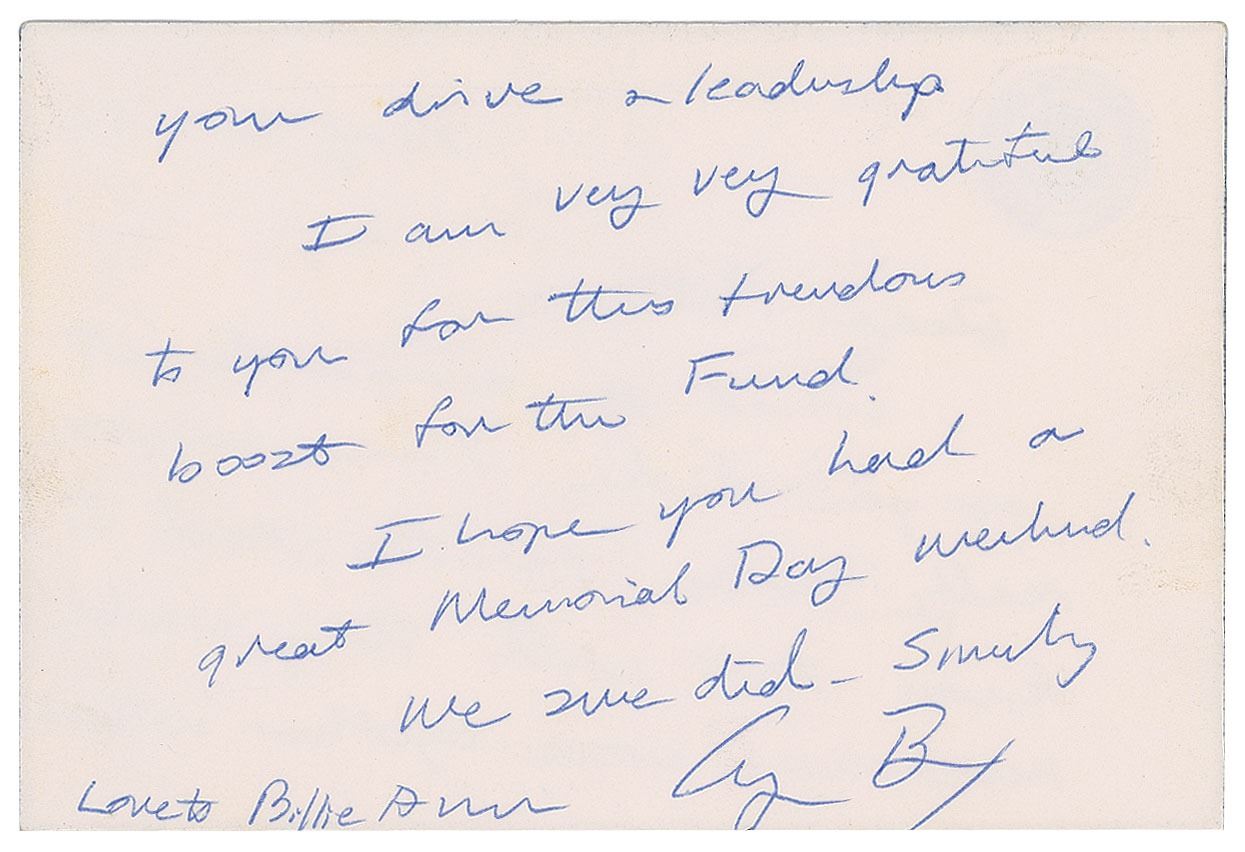 your drive & leadership
I am very very grateful
to you for this trendous
boost for the Fund.
I hope you had a
great Memorial Day weekend.
We sure did - Sincerely
Love to Billie Ann